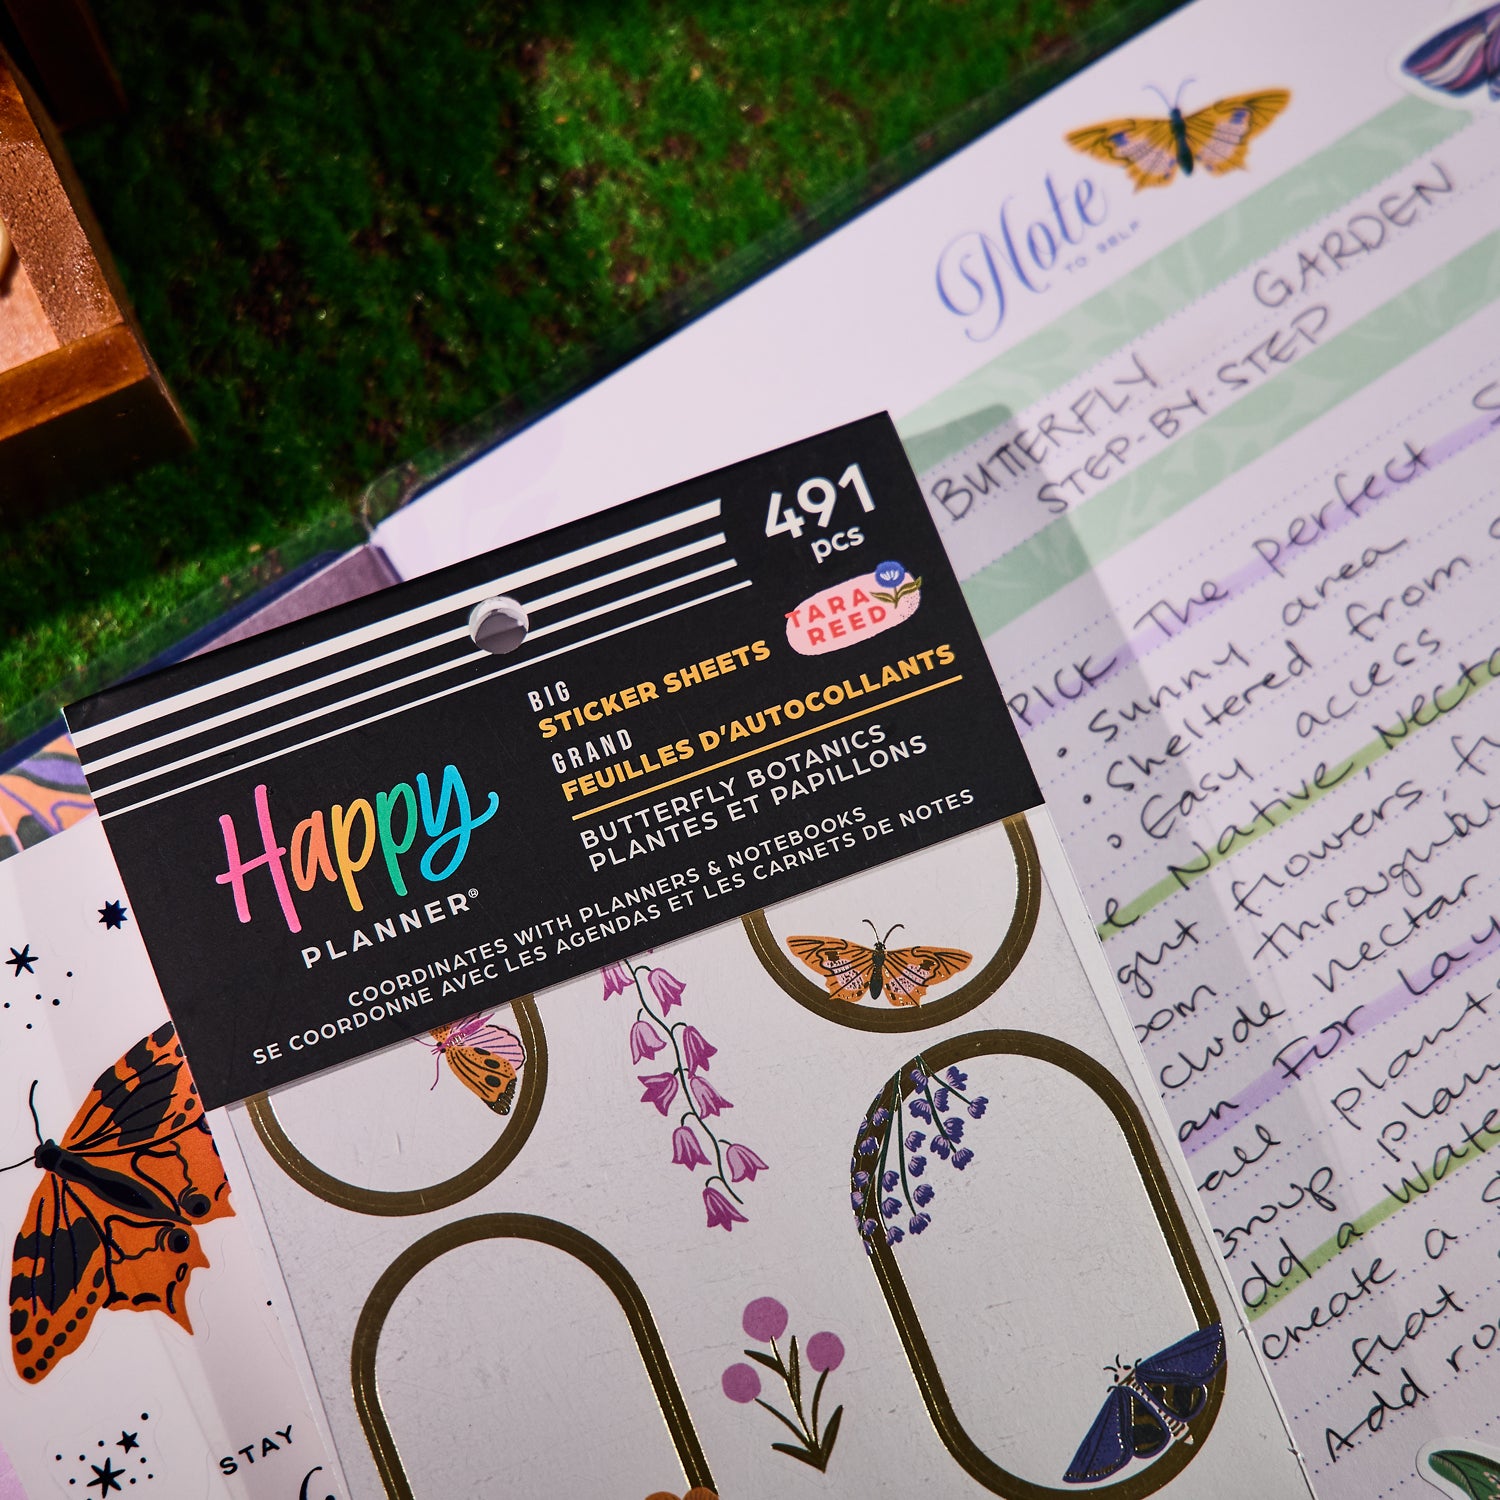 Note
TO SELF
BUTTERFLY GARDEN
STEP-BY-STEP
PICK The perfect
• Sunny area
• Sheltered from
• Easy access
Native, Necta
flowers,
throughou
nectar
clude
For Lay
plants
Group Plan
a Wate
create a
flat
Add
491
pcs
TARA
REED
BIG
STICKER SHEETS
GRAND
FEUILLES D'AUTOCOLLANTS
BUTTERFLY BOTANICS
PLANTES ET PAPILLONS
Happy
PLANNER®
COORDINATES WITH PLANNERS & NOTEBOOKS
SE COORDONNE AVEC LES AGENDAS ET LES CARNETS DE NOTES
STAY